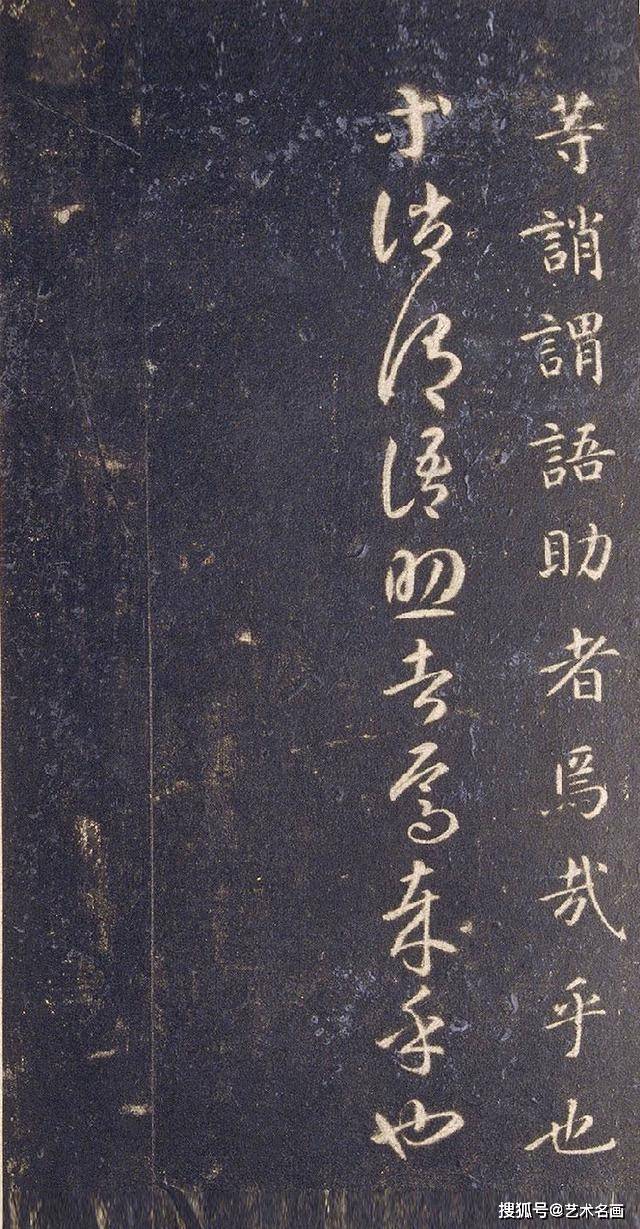 等誚謂語助者焉哉乎也
等誚謂語助者焉哉乎也
搜狐号@艺术名画